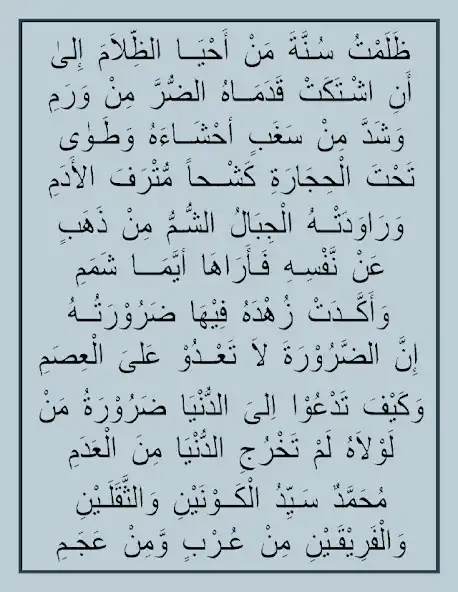 ظَلَمْتُ سُنَّةَ مَنْ أَحْيَـا الظِّلَامَ إِلىٰ
أَنِ اشْتَكَتْ قَدَمَـاهُ الضُّرَّ مِنْ وَرَمِ
وَشَدَّ مِنْ سَغَبٍ أحْشَـاءَهُ وَطَـوٰى
تَحْتَ الْحِجَارَةِ كَشْـحاً مُّتْرَفَ الأَدَمِ
وَرَاوَدَتْـهُ الْجِبَالُ الشُّمُّ مِنْ ذَهَبٍ
عَنْ نَّفْسِهِ فَـأَرَاهَا أيَّمَـا شَمَمِ
وَأَكَّـدَتْ زُهْدَهُ فِيْهَا ضَرُوْرَتُـهُ
إِنَّ الضَّرُوْرَةَ لاَ تَعْـدُوْ عَلىَ الْعِصَمِ
وَكَيْفَ تَدْعُوْا اِلىَ الدُّنْيَا ضَرُوْرَةُ مَنْ
لَوْلاَهُ لَمْ تَخْرُجِ الدُّنْيَا مِنَ الْعَدَمِ
مُحَمَّدٌ سَـيِّدُ الْكَـوْنَيْنِ وَالثَّقَلَـيْنِ
وَالْفَرِيْقَـيْنِ مِنْ عُـرْبٍ وَّمِنْ عَجَـمِ